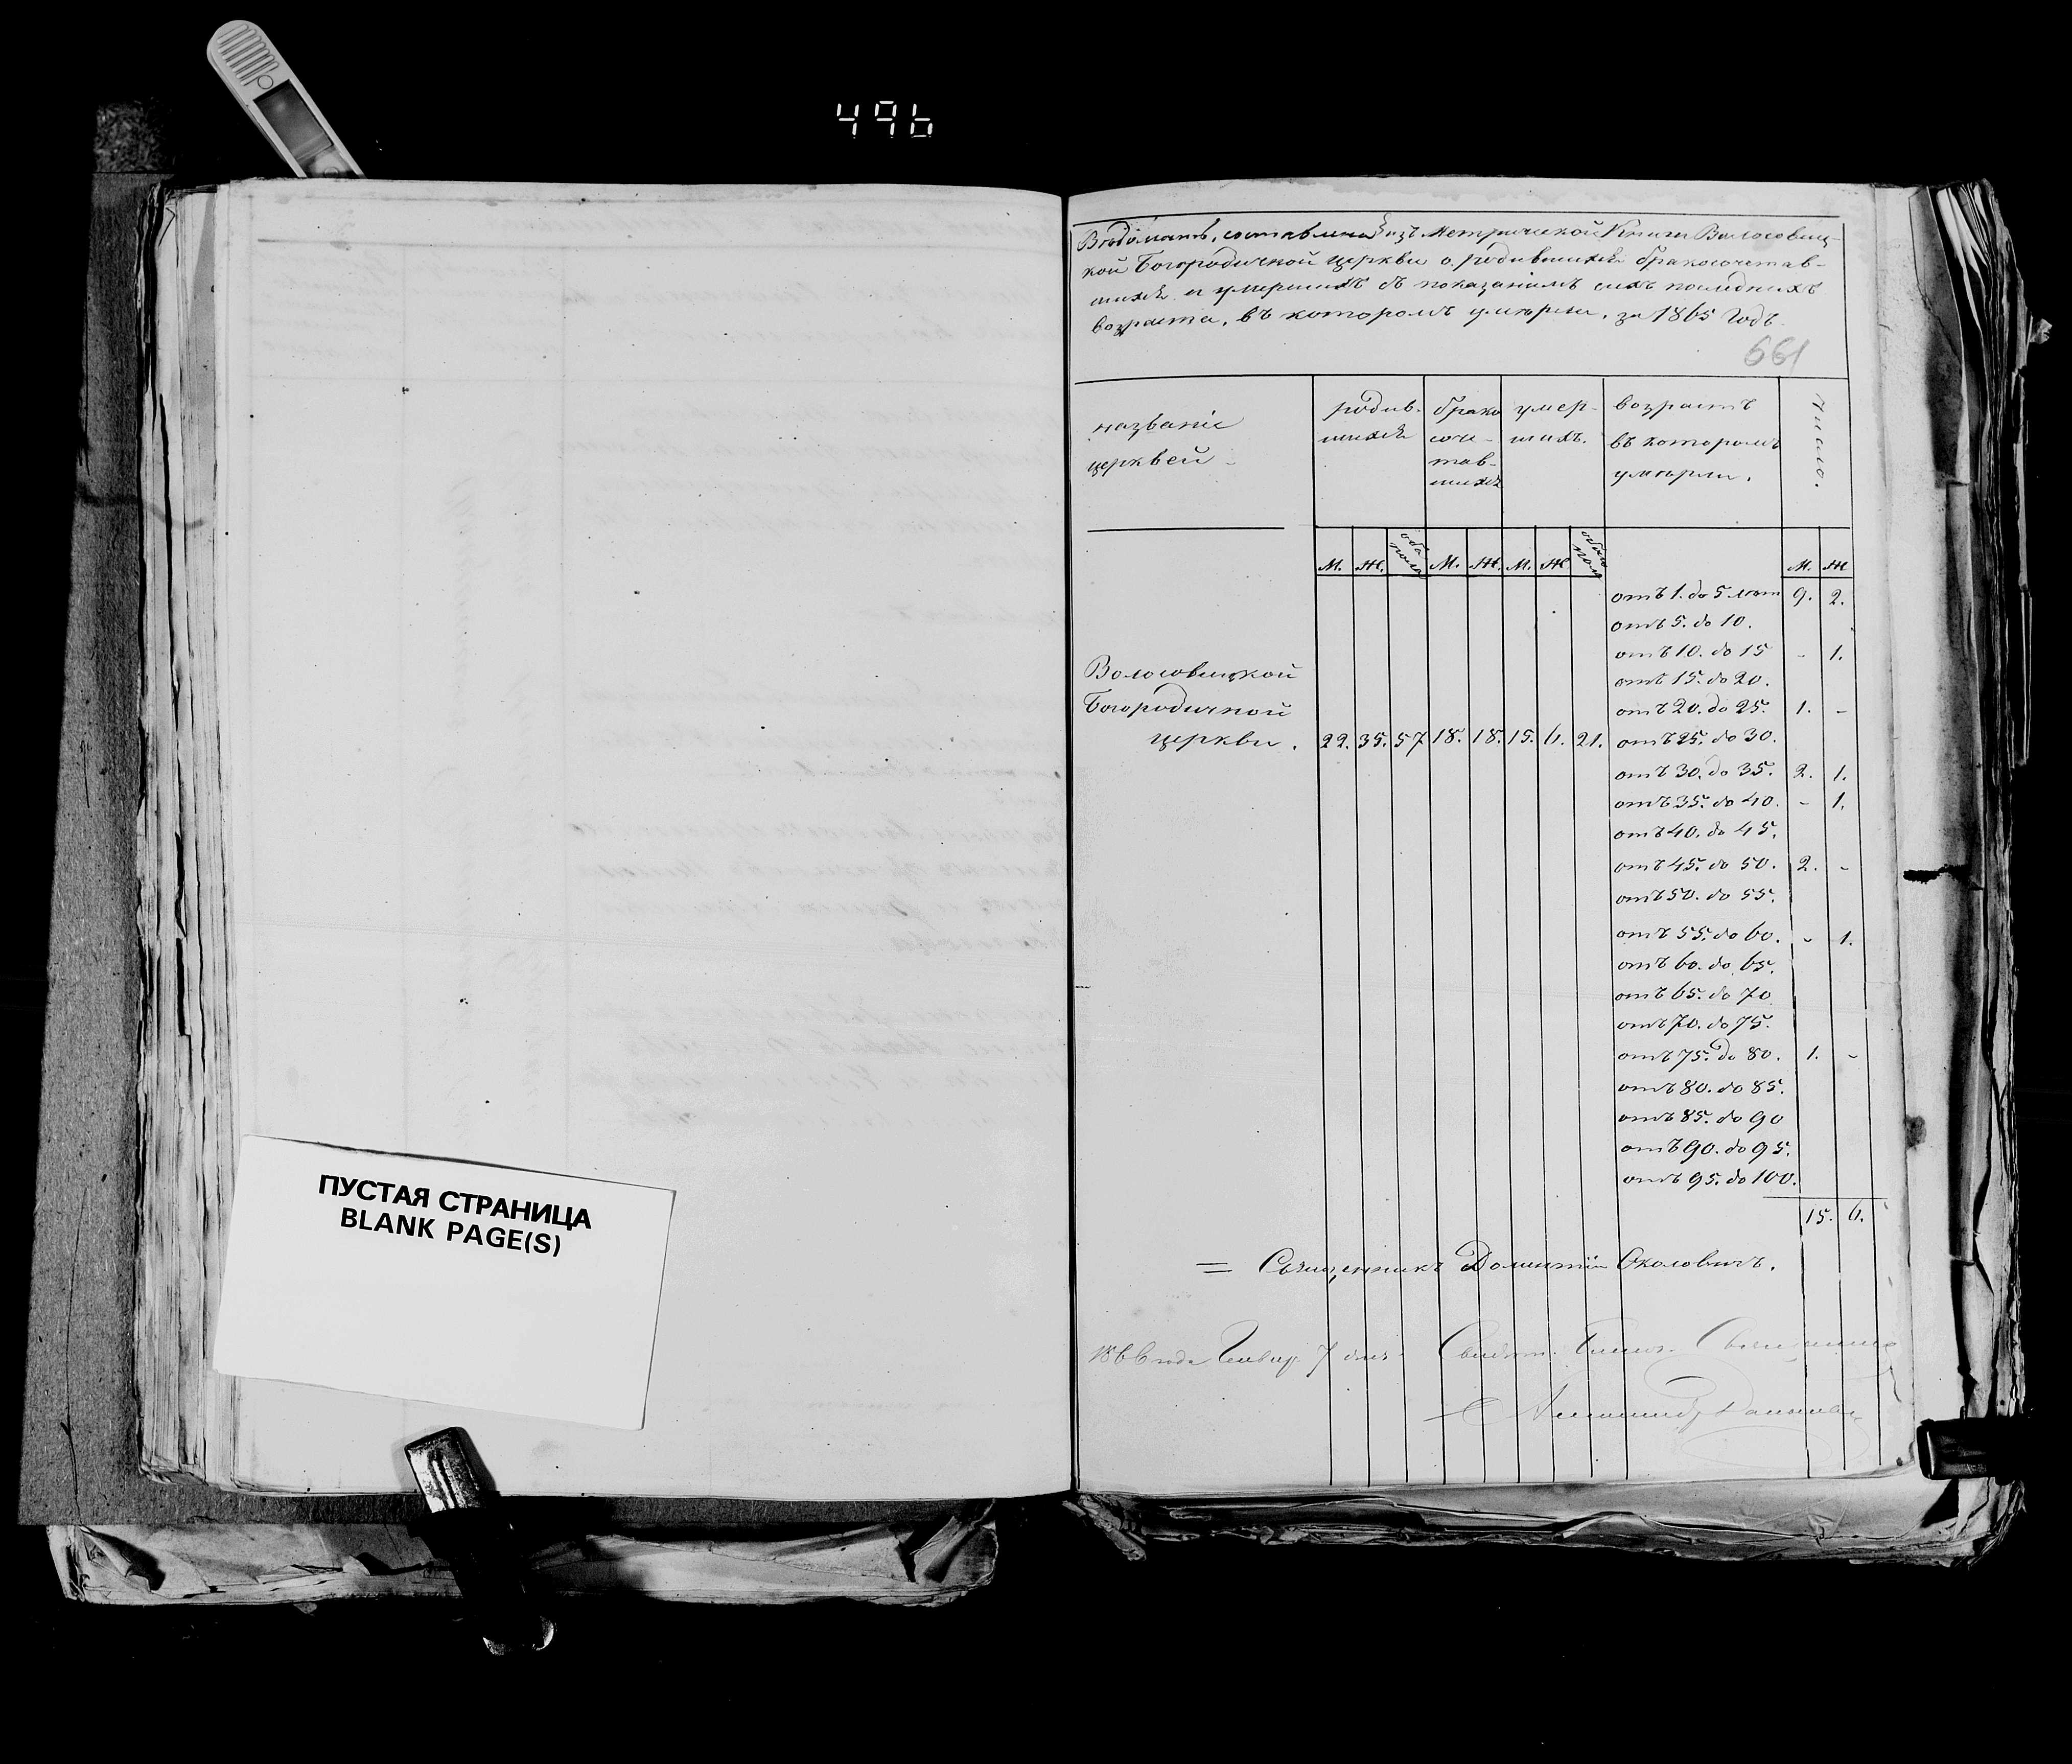 496
ПУСТАЯ СТРАНИЦА
BLANK PAGE(S)
Вѣдомость, составлена изъ Метрической Книги Волосовиц-
кой Богородичной церкви о родившихся бракосочетав-
шихся и умершихъ съ показаніемъ сихъ последнихъ
возраста, въ которомъ умѣрли, за 1865 Годъ.
661
названіе церквей. родив-шихся брако соче-тав-шихся умер-шихъ. возрастъ въ которомъ умѣрли. Число.
М. Ж. обоего пола М. Ж. М. Ж обоего пола М. Ж
отъ 1. до 5 лѣтъ 9. 2.
отъ 5. до 10.
отъ 10. до 15 - 1.
отъ 15. до 20.
отъ 20. до 25. 1. -
Волосовицкой
Богородичной
церкви. 22. 35. 57 18. 18. 15. 6. 21. отъ 25. до 30.
отъ 30. до 35. 2. 1.
отъ 35. до 40. - 1.
отъ 40. до 45.
отъ 45. до 50. 2. -
отъ 50. до 55.
отъ 55. до 60. - 1.
отъ 60. до 65.
отъ 65. до 70
отъ 70. до 75.
отъ 75. до 80. 1. -
отъ 80. до 85.
отъ 85. до 90
отъ 90. до 95.
отъ 95. до 100.
15. 6.
= Священникъ Доментій Околовичъ.
1866 года Генвар. 7 дня